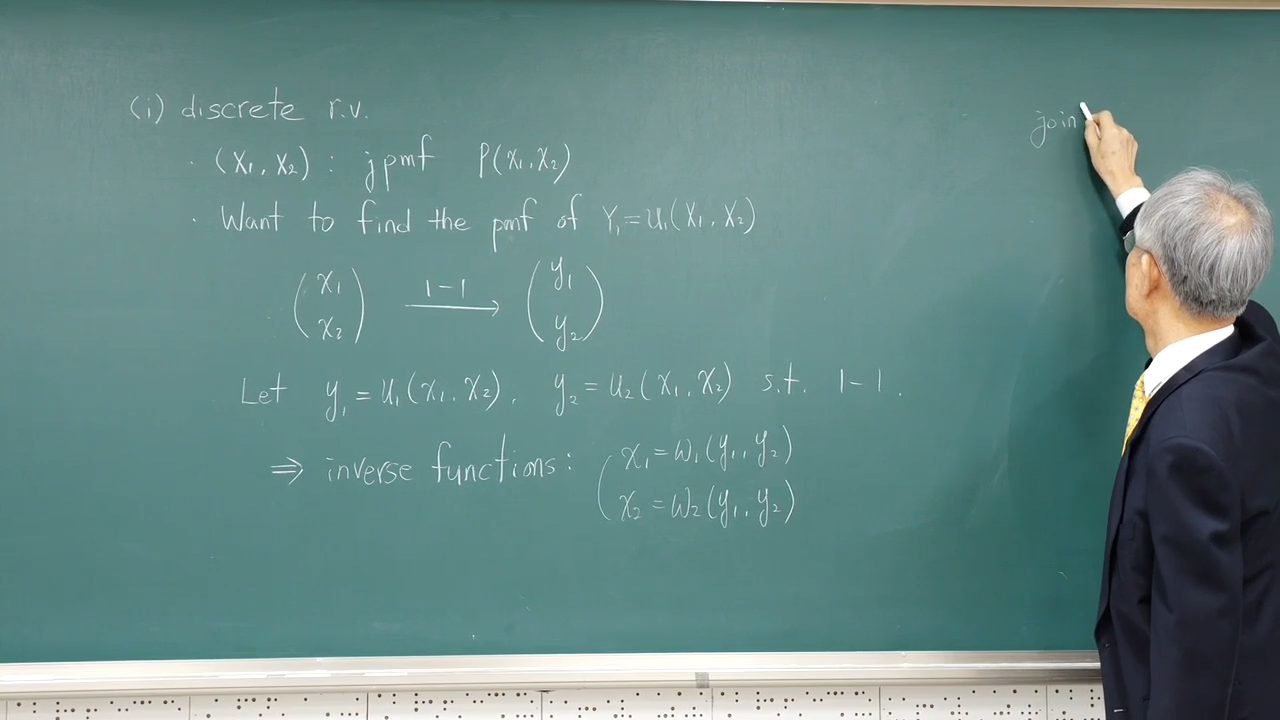 (i) discrete r.v.
· (X₁, X₂) : jpmf P(x₁, x₂)
· Want to find the pmf of Y₁ = u₁(X₁, X₂)
(x₁ x₂) 1-1 → (y₁ y₂)
Let y₁ = u₁(x₁, x₂), y₂ = u₂(x₁, x₂) s.t. 1-1.
⇒ inverse functions : ( x₁ = w₁(y₁, y₂)
x₂ = w₂(y₁, y₂)
join